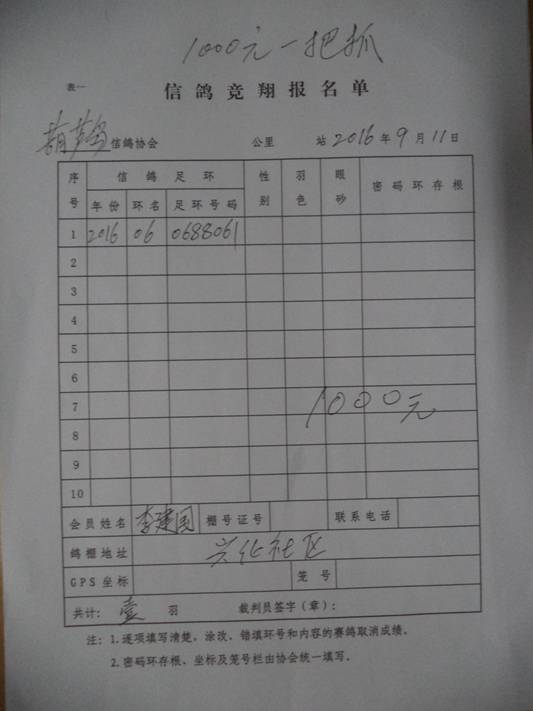 1000元一把抓
表一
信鸽竞翔报名单
葫芦岛信鸽协会 公里 站2016年9月11日
序号 信鸽足环 性别 羽色 眼砂 密码环存根
年份 环名 足环号码
1 2016 06 0688061
2
3
4
5
6
7 1000元
8
9
10
会员姓名 李建国 棚号证号 联系电话
鸽棚地址 兴化社区
GPS坐标 笼号
共计：壹羽 裁判员签字（章）：
注：1.逐项填写清楚、涂改、错填环号和内容的赛鸽取消成绩。
2.密码环存根、坐标及笼号栏由协会统一填写。